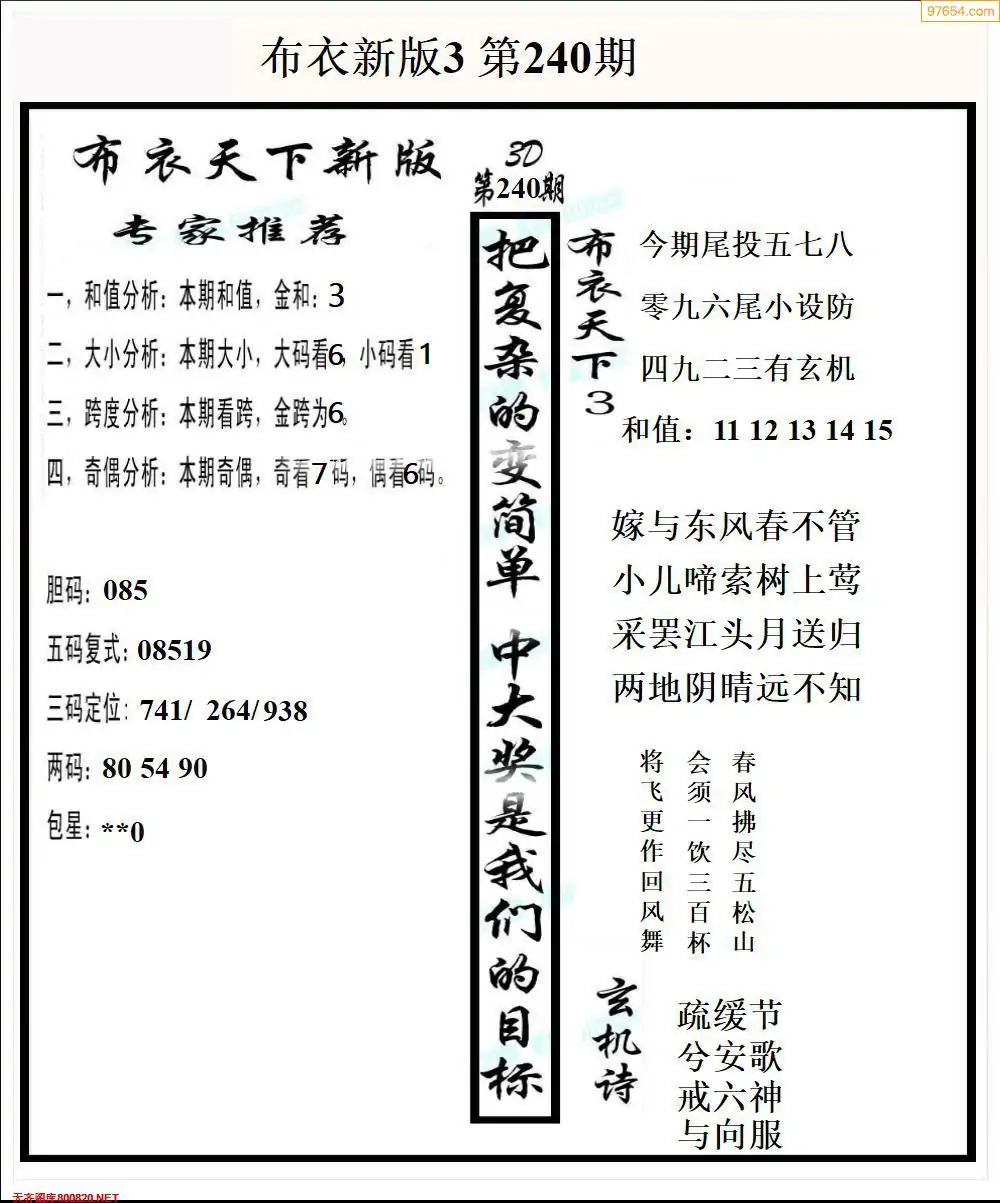 97654.com
布衣新版3 第240期
布衣天下新版
专家推荐
一，和值分析：本期和值，金和：3
二，大小分析：本期大小，大码看6，小码看1
三，跨度分析：本期看跨，金跨为6。
四，奇偶分析：本期奇偶，奇看7码，偶看6码。
胆码：085
五码复式：08519
三码定位：741/ 264/938
两码：80 54 90
包星：**0
3D
第240期
把复杂的变简单 中大奖是我们的目标
布衣天下3
今期尾投五七八
零九六尾小设防
四九二三有玄机
和值：11 12 13 14 15
嫁与东风春不管
小儿啼索树上莺
采罢江头月送归
两地阴晴远不知
春风拂尽五松山
会须一饮三百杯
将飞更作回风舞
玄机诗
疏缓节
兮安歌
戒六神
与向服
天齐图库800820.NET